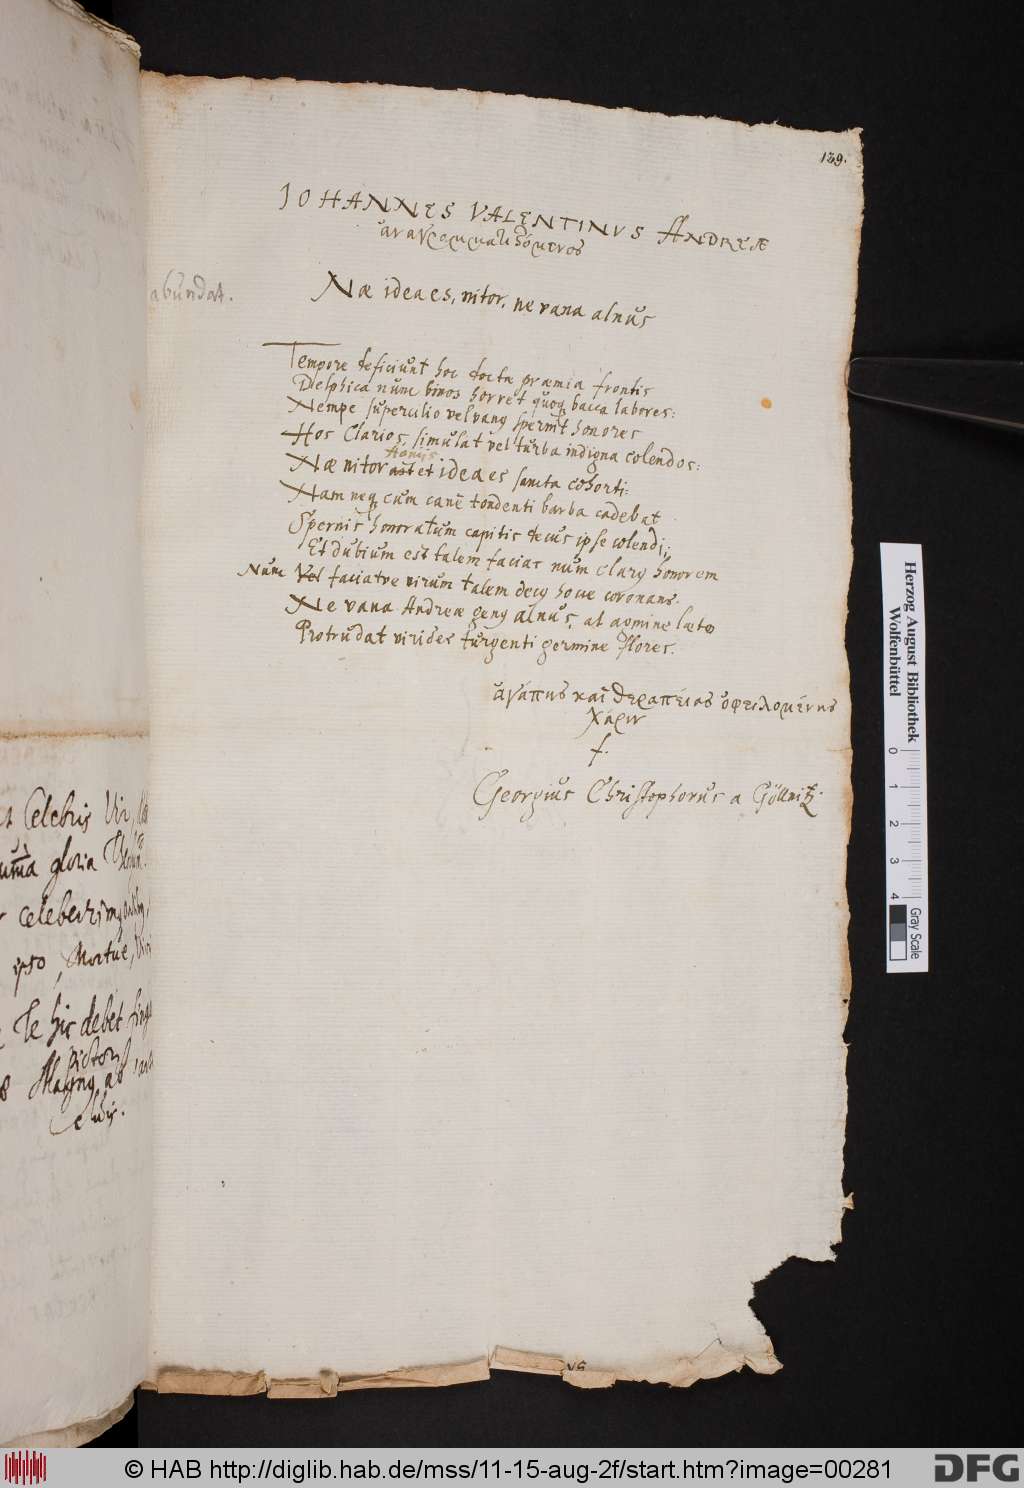 139.
IOHANNES VALENTINVS ANDREÆ
ἀναγραμματιζόμενος
abundat.
Næ idea es, nitor, ne vana alnus
Tempore deficiunt hoc docta præmia frontis
Delphica num binos horret quoq bacca labores:
Nempe superculio vel vang spernit honores
Hos Clarios, simulat vel turba indigna colendos:
Aoniis
Næ nitor et idea es sancta cohorti:
Nam neq cum canē tondenti barba cadebat
Spernis honoratum capitis decus ipse colendi;
Et dubium est talem facias num clarg honorem
Num Vel faciatve virum talem decg hocce coronans.
Ne vana Andreæ geng alnus, at agmine læto
Protrudat virides turgenti germine flores.
ἀγάπης καὶ θεραπείας ὀφειλομένης
χάριν
f.
Georgius Christophorus a Göllnitz.
Celebris Vir,
gloria
celeberrimg
ipso, Mortue,
Te hic debet
pictor
Magng, ab
Herzog August Bibliothek
Wolfenbüttel
0 1 2 3 4
Gray Scale
© HAB http://diglib.hab.de/mss/11-15-aug-2f/start.htm?image=00281
DFG